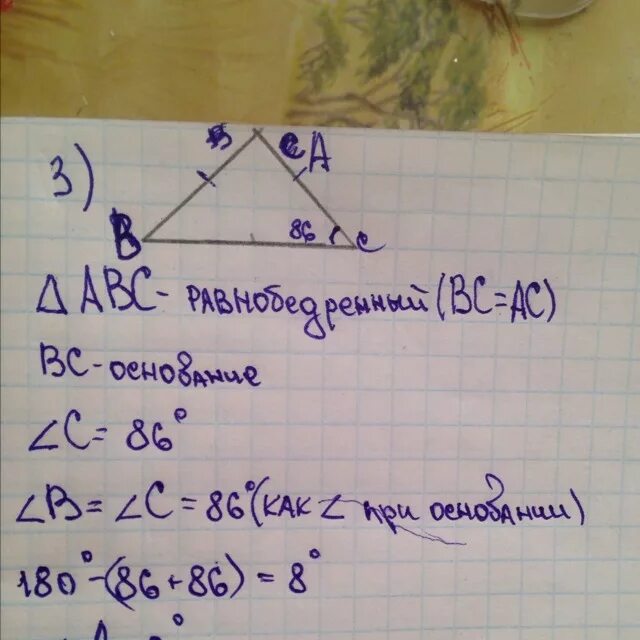 3)
A
B
86
C
△ ABC - равнобедренный (BC=AC)
BC - основание
∠C = 86°
∠B = ∠C = 86° (как ∠ при основании)
180° - (86 + 86) = 8°